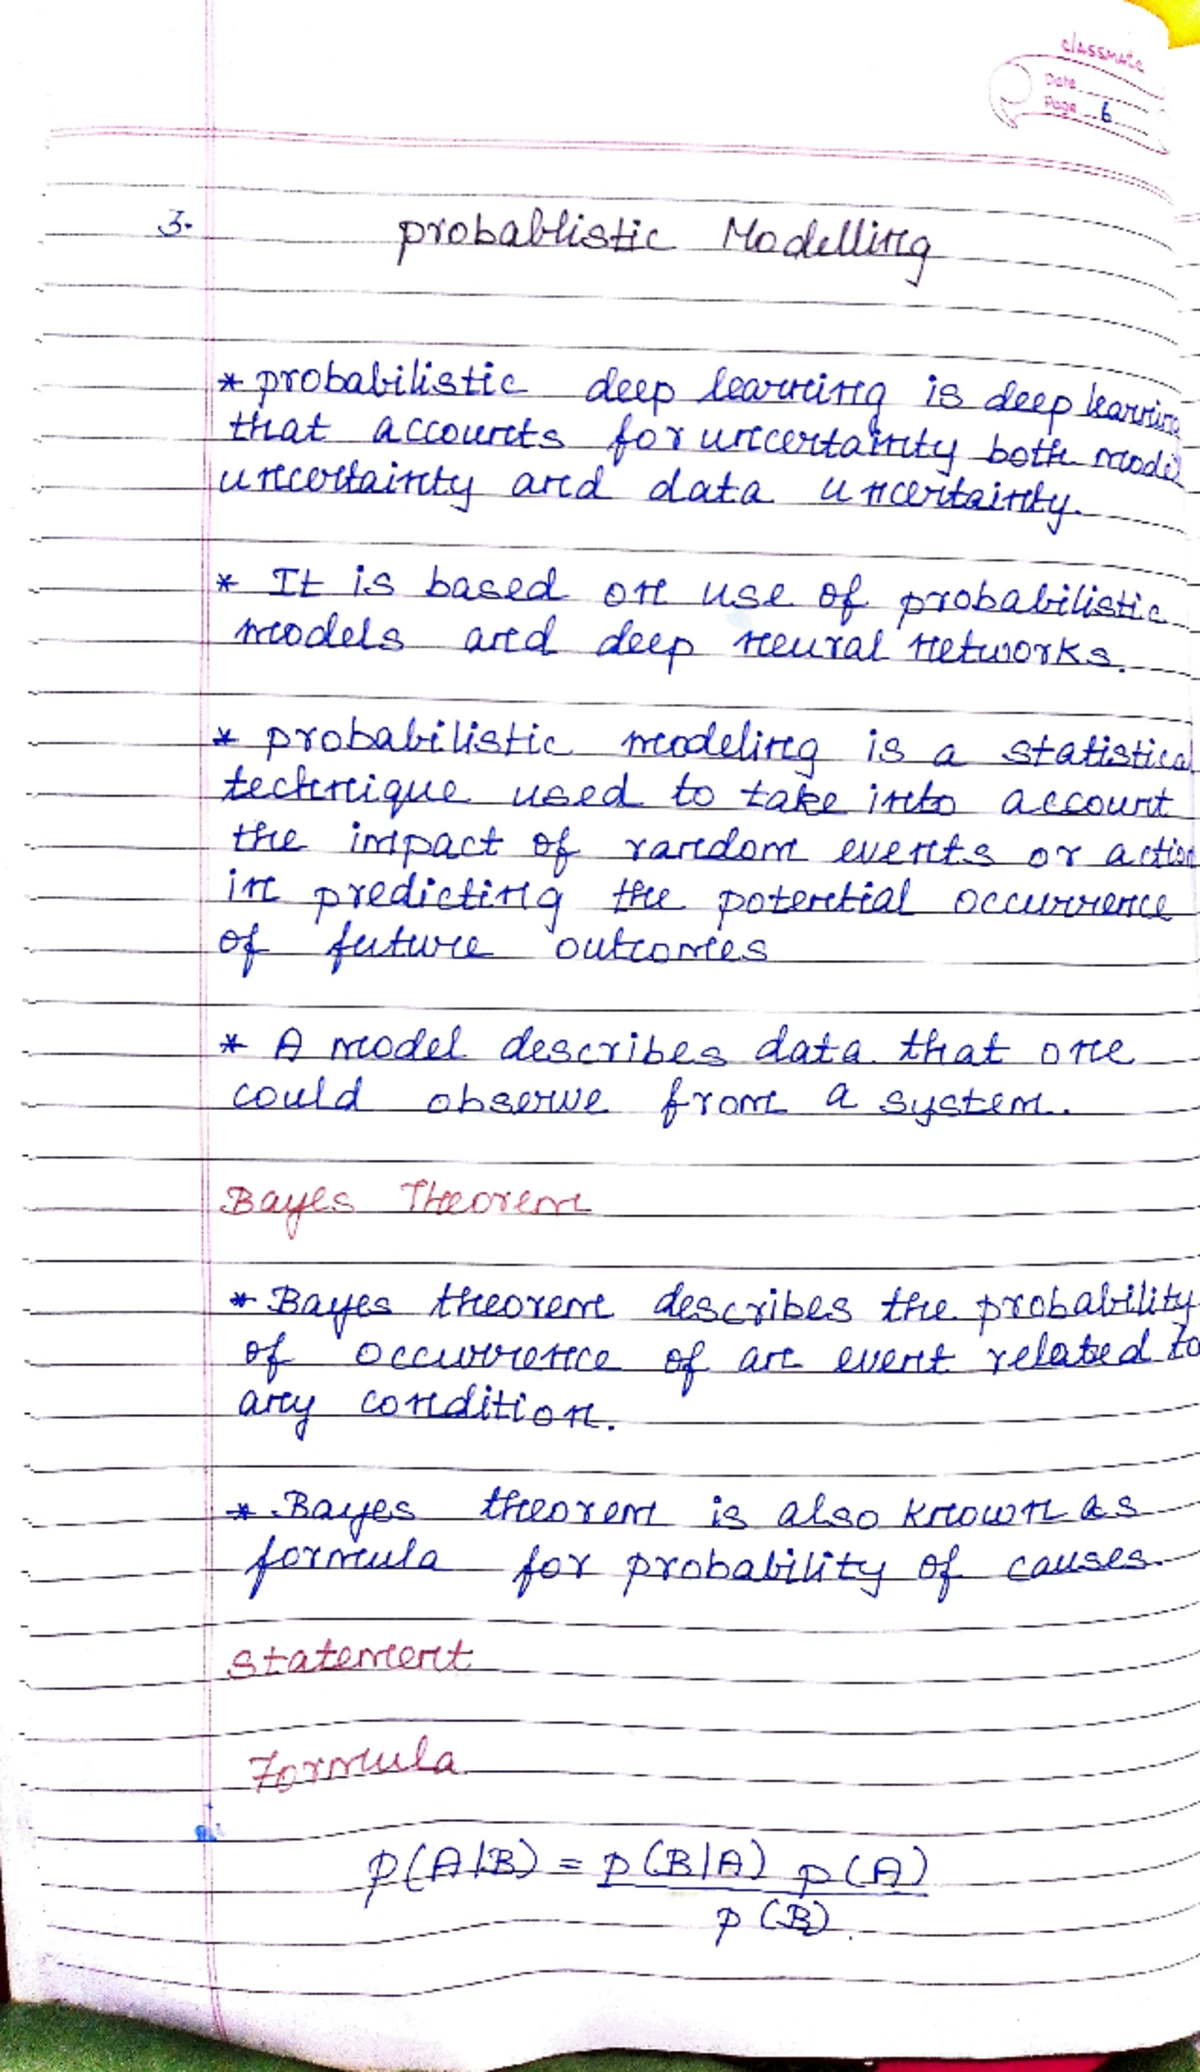 classmate
Date
Page 6
3. probablistic Modelling
* probabilistic deep learning is deep learning
that accounts for uncertainty both model
uncertainty and data uncertainty.
* It is based on use of probabilistic
models and deep neural networks.
* probabilistic modeling is a statistical
technique used to take into account
the impact of random events or action
in predicting the potential occurrence
of future outcomes
* A model describes data that one
could observe from a system.
Bayes Theorem
* Bayes theorem describes the probability
of occurrence of an event related to
any condition.
* Bayes theorem is also known as
formula for probability of causes.
Statement
Formula
p(A|B) = p(B|A) p(A)
p(B).